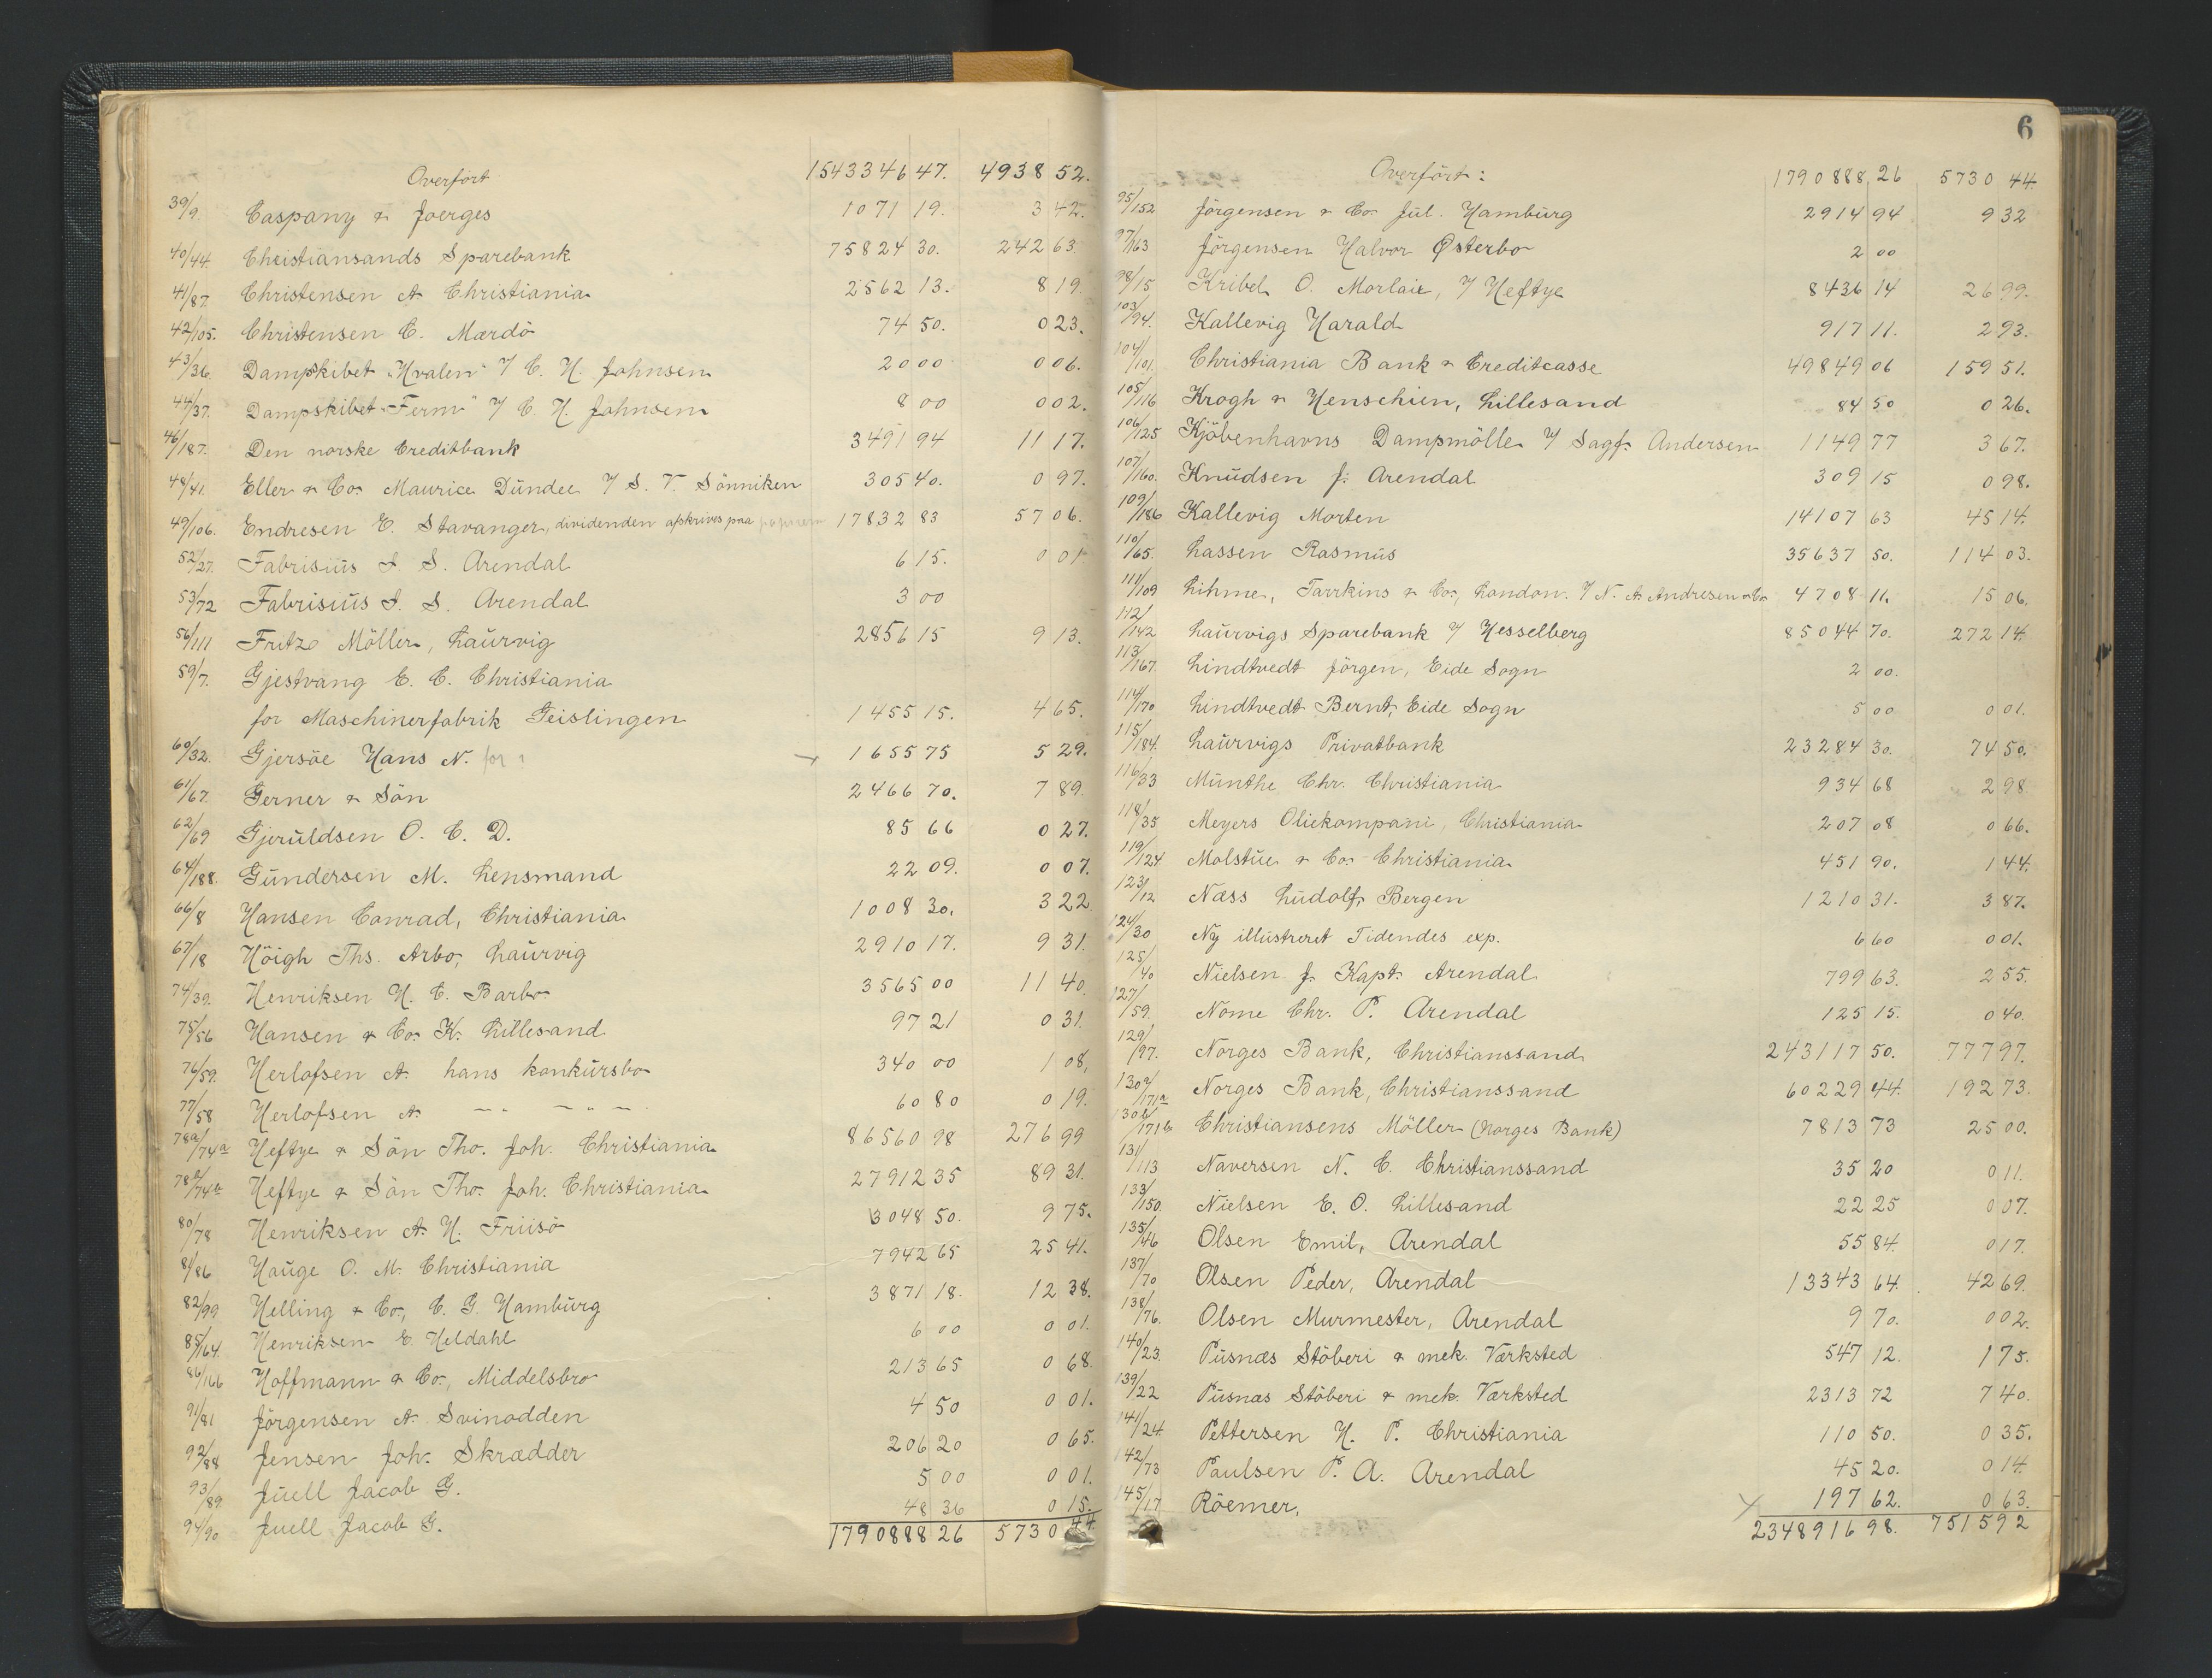 Overført 1543346 47. 4938 52.
39/9. Caspany & Joerges 1071 19. 3 42.
40/44. Christiansands Sparebank 75824 30. 242 63.
41/87. Christensen A. Christiania 2562 13. 8 19.
42/105. Christensen C. Mærdö 74 50. 0 23.
43/36. Dampskibet "Hvalen" V C. H. Johnsen 20 00 0 06.
44/37. Dampskibet "Ferm" V C. H. Johnsen 8 00 0 02.
46/187. Den norske Creditbank 3491 94 11 17.
48/41. Eller & Co. Maurice Dündee V S. V. Sönniken 305 40. 0 97.
49/106. Endresen E. Stavanger, dividenden afskrives paa 17832 83 57 06.
52/27. Fabrisiüs J. S. Arendal 6 15. 0 01
53/72 Fabrisiüs J. S. Arendal 3 00
56/111 Fritzö Möller, Laürvig 2856 15 9 13.
59/7. Gjestvang E. C. Christiania
for Maschinenfabrik Geislingen 1455 15. 4 65.
60/32. Gjersöe Hans N. for 1655 75 5 29.
61/67. Gerner & Sön 2466 70. 7 89.
62/69 Gjerüldsen O. C. D. 85 66 0 27.
64/188. Gündersen M. Lensmand 22 09. 0 07.
66/8 Hansen Conrad, Christiania 1008 30. 3 22
67/18 Höigh Ths. Arbo, Laürvig 2910 17. 9 31.
74/39. Henriksen H. C. Barbo 3565 00 11 40.
75/56 Hansen & Co. K. Lillesand 97 21 0 31.
76/59. Herlofsen A. hans konkürsbo 340 00 1 08.
77/58 Herlofsen A. — " — " — 60 80 0 19.
78a/74a Heftye & Sön Tho. Joh. Christiania 86560 98 276 99
78b/74b Heftye & Sön Tho. Joh. Christiania 27912 35 89 31.
80/78 Henriksen A. H. Friisö 3048 50. 9 75.
81/86 Haüge O. M. Christiania 7942 65 25 41.
82/99 Helling & Co., C. G. Hambürg 3871 18. 12 38.
85/164. Henriksen E. Heldahl 6 00 0 01.
86/166 Hoffmann & Co., Middelsbro 213 65 0 68.
91/81 Jörgensen A. Svinodden 4 50 0 01.
92/88 Jensen Joh. Skrædder 206 20 0 65.
93/89. Jüell Jacob G. 5 00 0 01.
94/90 Juell Jacob G. 48 36 0 15.
1790888 26 5730 44.
6
Overført: 1790888 26 5730 44.
95/152 Jörgensen & Co. Jül. Hambürg 2914 94 9 32
97/163 Jörgensen Halvor Østerbo 2 00
98/15 Kribel O. Morlaix, V Heftye 8436 14 26 99.
103/94. Kallevig Harald 917 11. 2 93.
104/101. Christiania Bank & Creditcasse 49849 06 159 51.
105/116 Krogh & Henschien, Lillesand 84 50 0 26.
106/125 Kjöbenhavns Dampmölle V Sagf. Andersen 1149 77 3 67.
107/160. Knüdsen J. Arendal 309 15 0 98.
109/186 Kallevig Morten 14107 63 45 14.
110/65. Lassen Rasmüs 35637 50. 114 03.
111/109 Lihme, Tarrkins & Co., London. V N. A. Andresen & Co 4708 11. 15 06.
112/142 Laürvigs Sparebank V Hesselberg 85044 70. 272 14.
113/167. Lindtvedt Jörgen, Eide Sogn 2 00.
114/170 Lindtvedt Bernt, Eide Sogn 5 00 0 01.
115/184. Laürvigs Privatbank 23284 30. 74 50.
116/33 Münthe Chr. Christiania 934 68 2 98.
118/35 Meyers Oliekompani, Christiania 207 08 0 66.
119/124. Molstüe & Co. Christiania 451 90. 1 44.
123/12 Næss Lüdolf, Bergen 1210 31. 3 87.
124/30 Ny illüstreret Tidendes exp. 6 60 0 01.
125/40 Nielsen J. Kapt. Arendal 799 63. 2 55.
127/59. Nome Chr. P. Arendal 125 15. 0 40.
129/97. Norges Bank, Christianssand 243117 50. 777 97.
130a/171a Norges Bank, Christianssand 60229 44. 192 73.
130b/171b Christiansens Möller (Norges Bank) 7813 73 25 00.
131/113 Naversen N. C. Christianssand 35 20 0 11.
133/150. Nielsen E. O. Lillesand 22 25 0 07.
135/46 Olsen Emil, Arendal 55 84. 0 17.
137/70 Olsen Peder, Arendal 13343 64. 42 69.
138/76. Olsen Murmester, Arendal 9 70. 0 02.
140/23. Püsnæs Stöberi & mek. Værksted 547 12. 1 75.
139/22 Püsnæs Stöberi & mek. Værksted 2313 72 7 40.
141/24. Pettersen H. P. Christiania 110 50. 0 35.
142/73 Paulsen P. A. Arendal 45 20. 0 14.
145/17 Röemer, 197 62. 0 63.
2348916 98. 7515 92